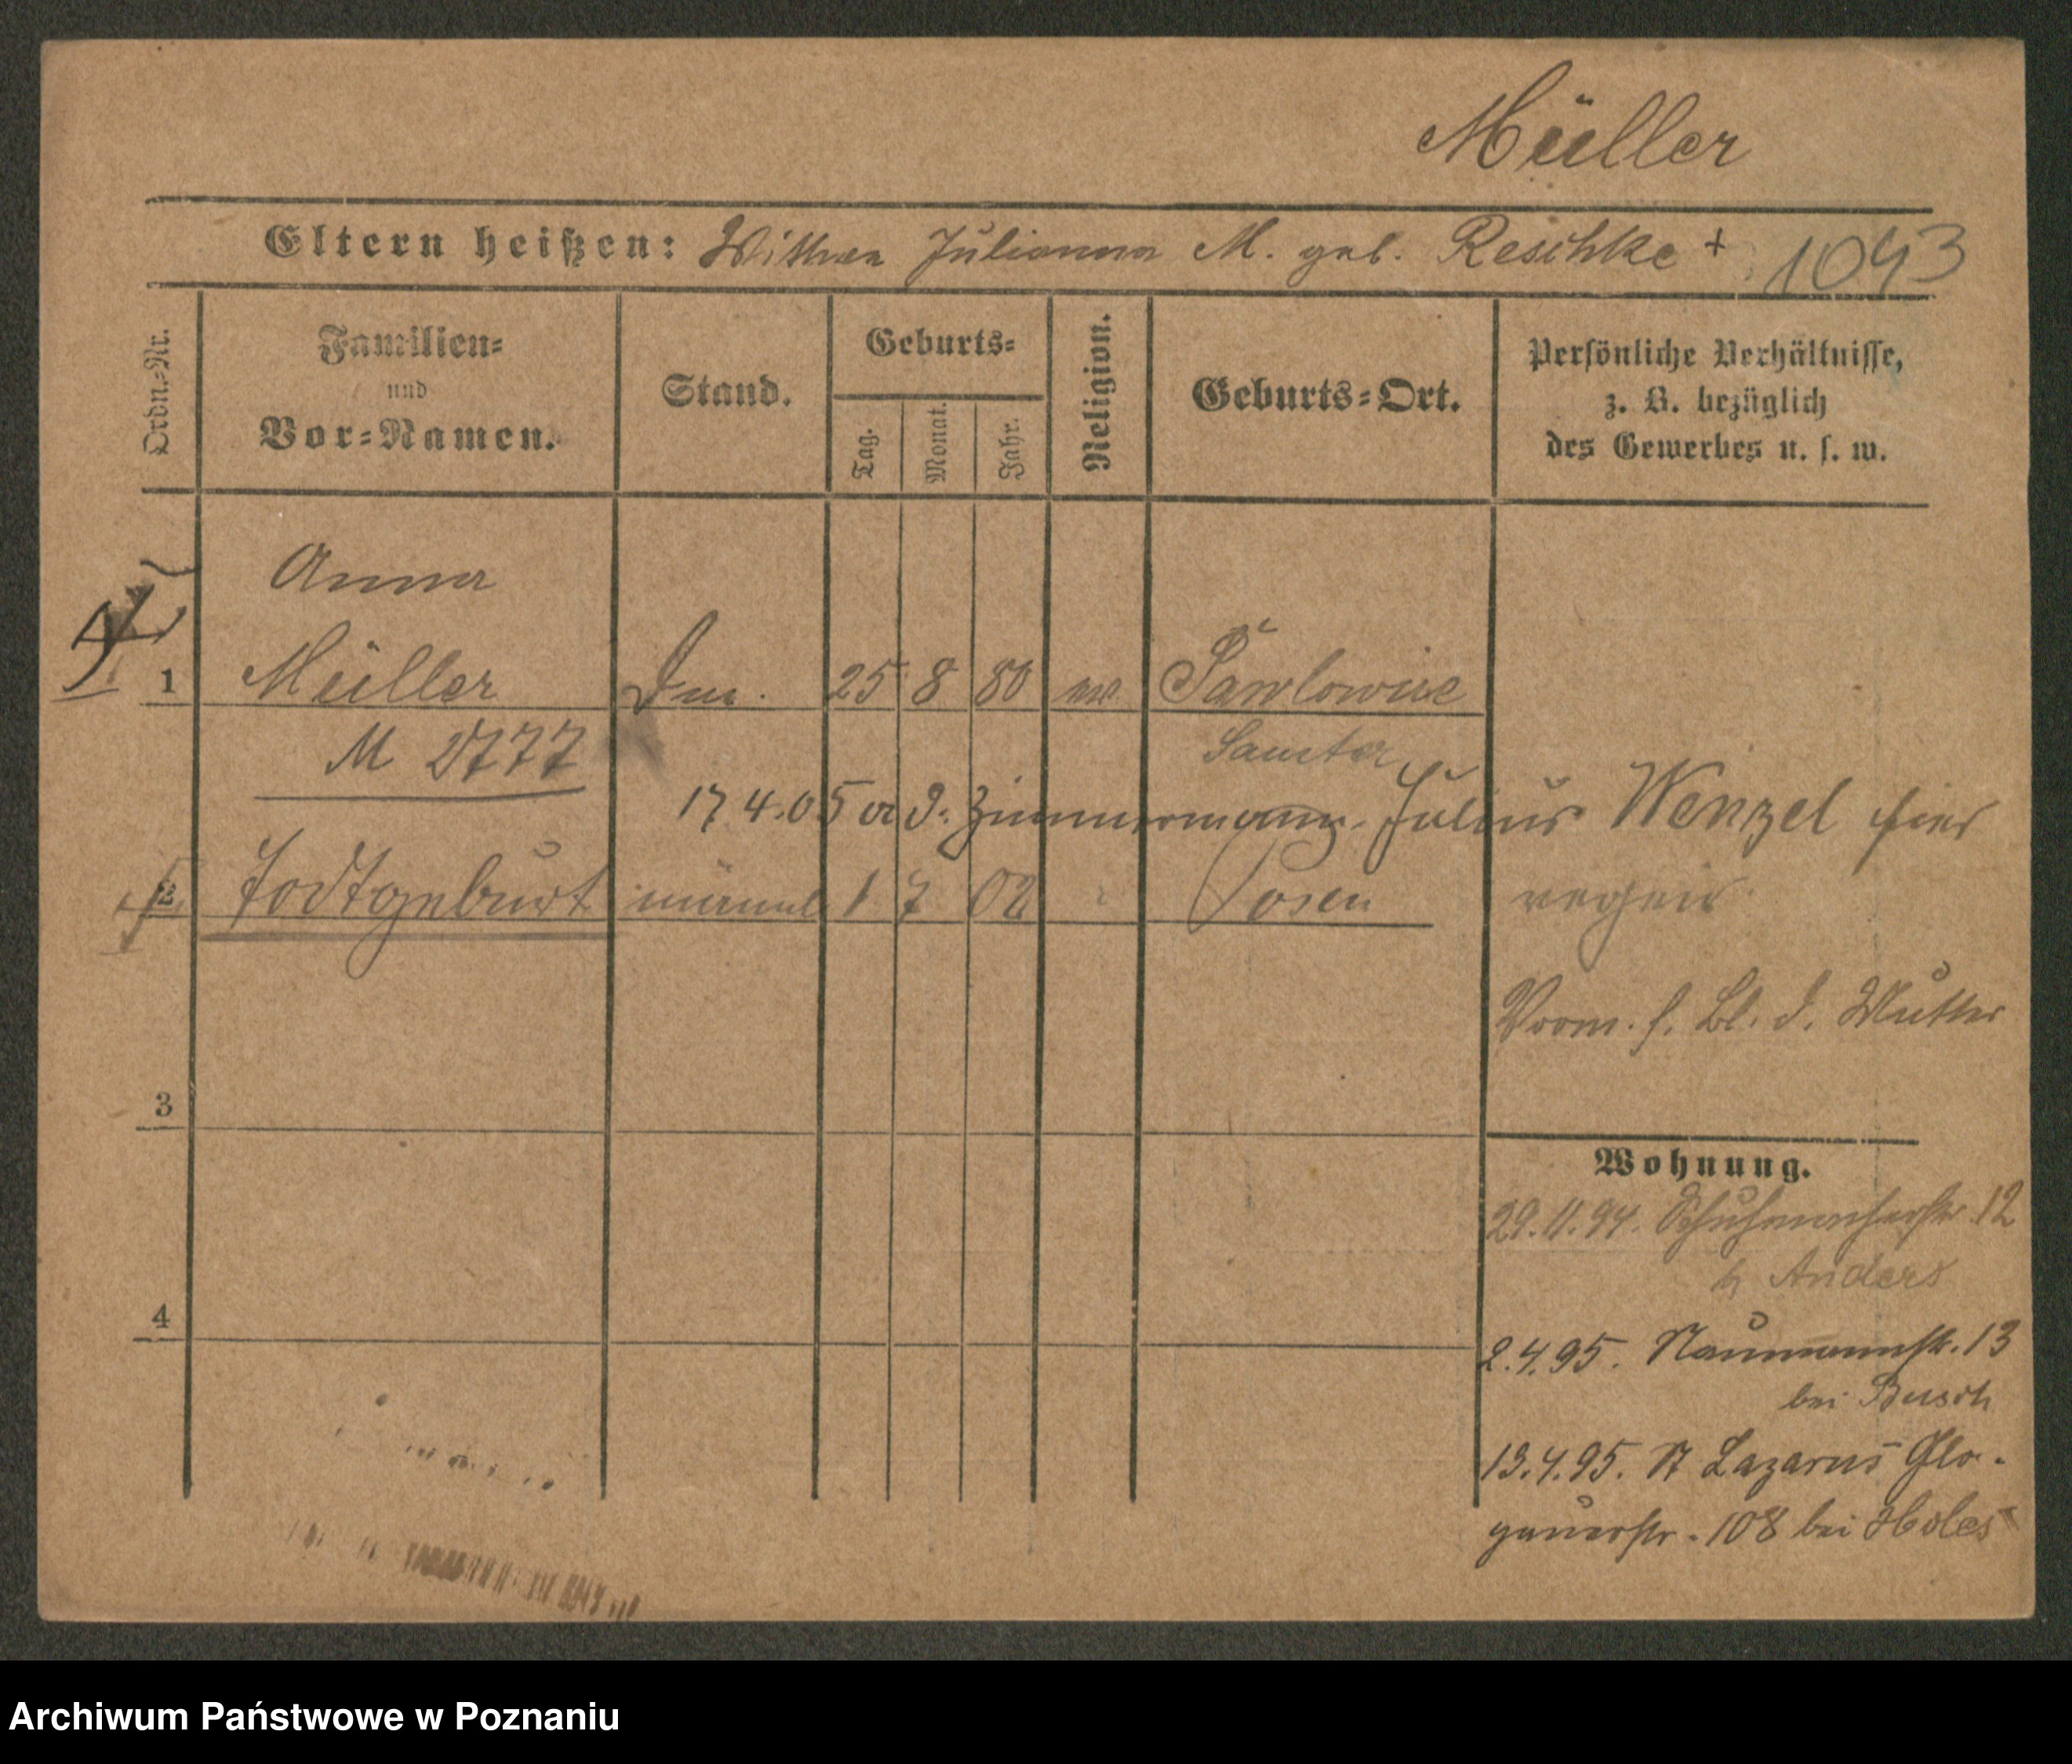 Müller
Eltern heißen: Wittwe Julianna M. geb. Reschke + 1043
Ordn.-Nr.
Familien-
und
Vor-Namen.
Stand.
Geburts-
Tag.
Monat.
Jahr.
Religion.
Geburts-Ort.
Persönliche Verhältnisse,
z. B. bezüglich
des Gewerbes u. s. w.
Anna
1 Müller 25 8 80 ev. Pawlowice
M 2777 Samter
17.4.05 Zimmermann Julius Wenzel hier
2 Todtgeburt männl 1 7 02 Posen
Vorm. s. Bl. d. Mutter
3
Wohnung.
29.11.94. Schuhmacherstr. 12
b Anders
4
2.4.95. Naumannstr. 13
bei Busch
13.4.95. St Lazarus Glo-
gauerstr. 108 bei
Archiwum Państwowe w Poznaniu